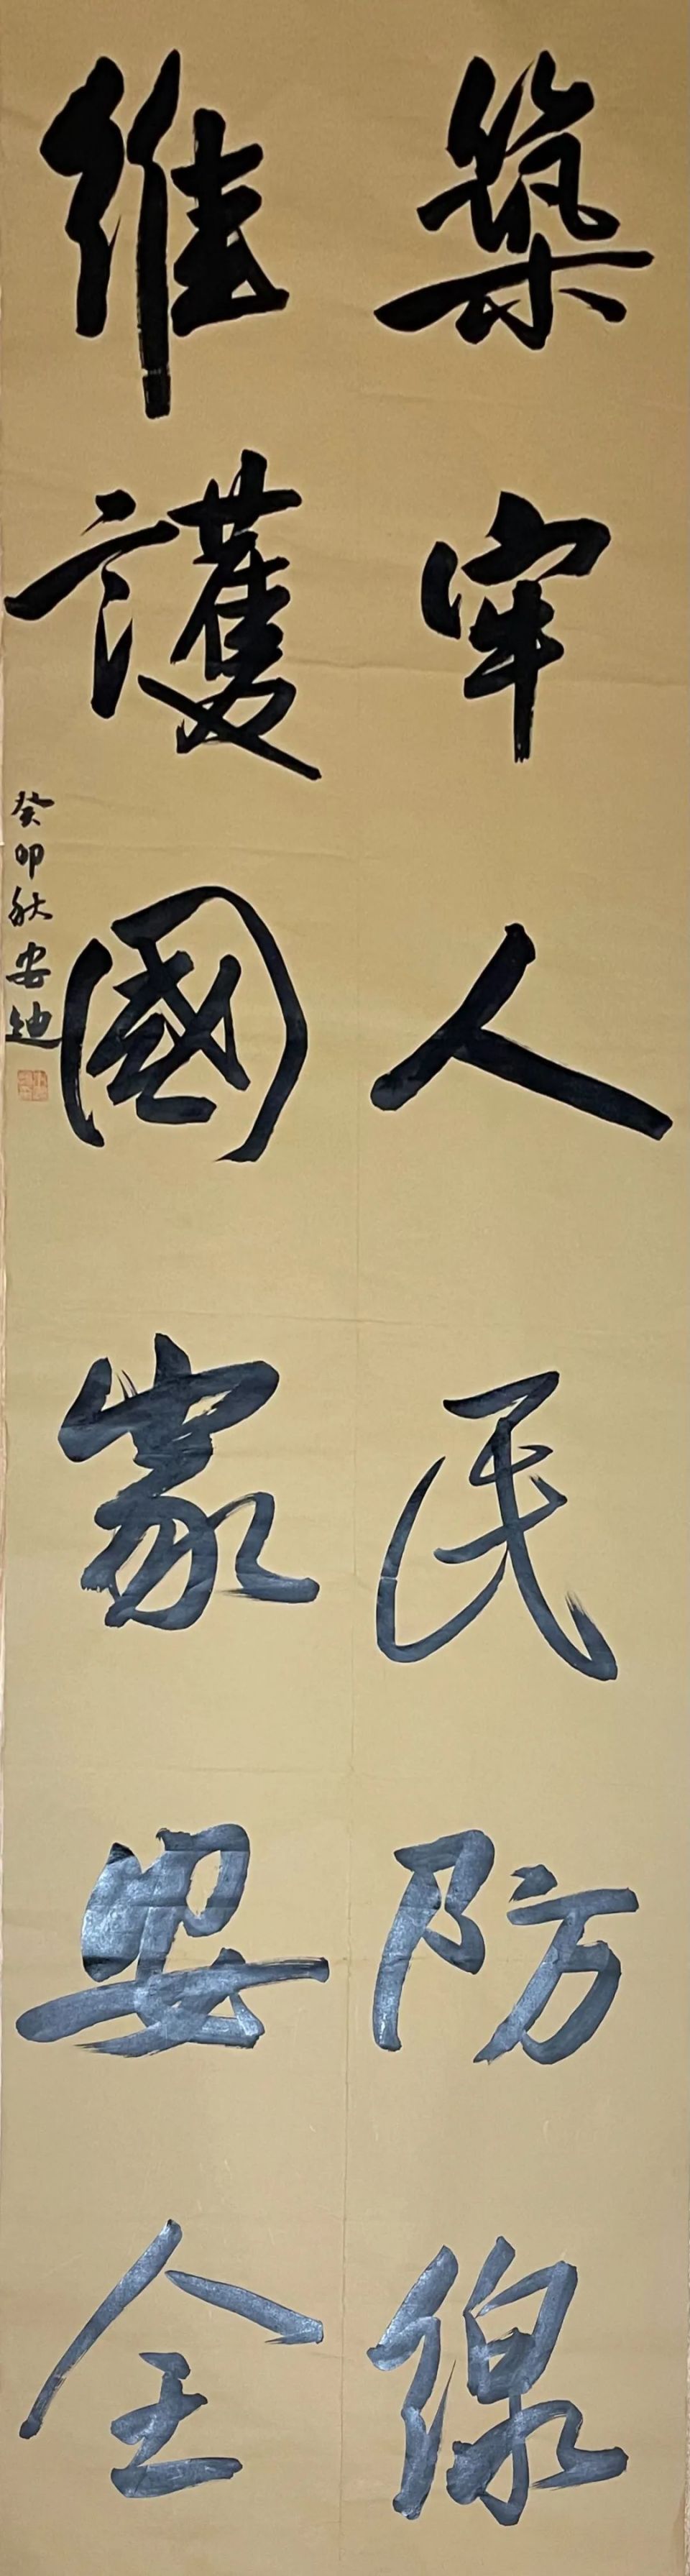 築牢人民防線
維護國家安全
癸卯秋安迪